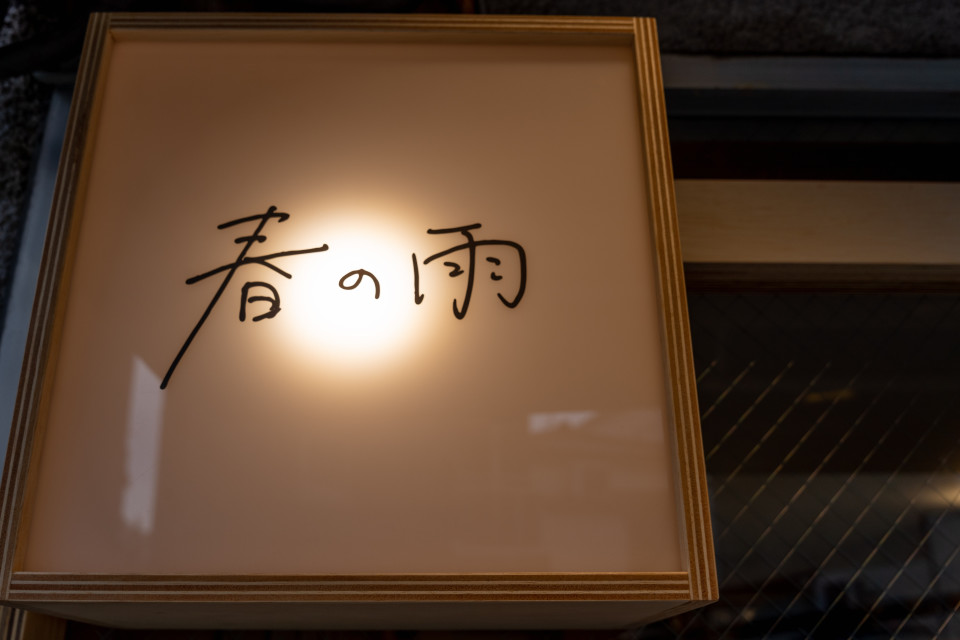 春の雨